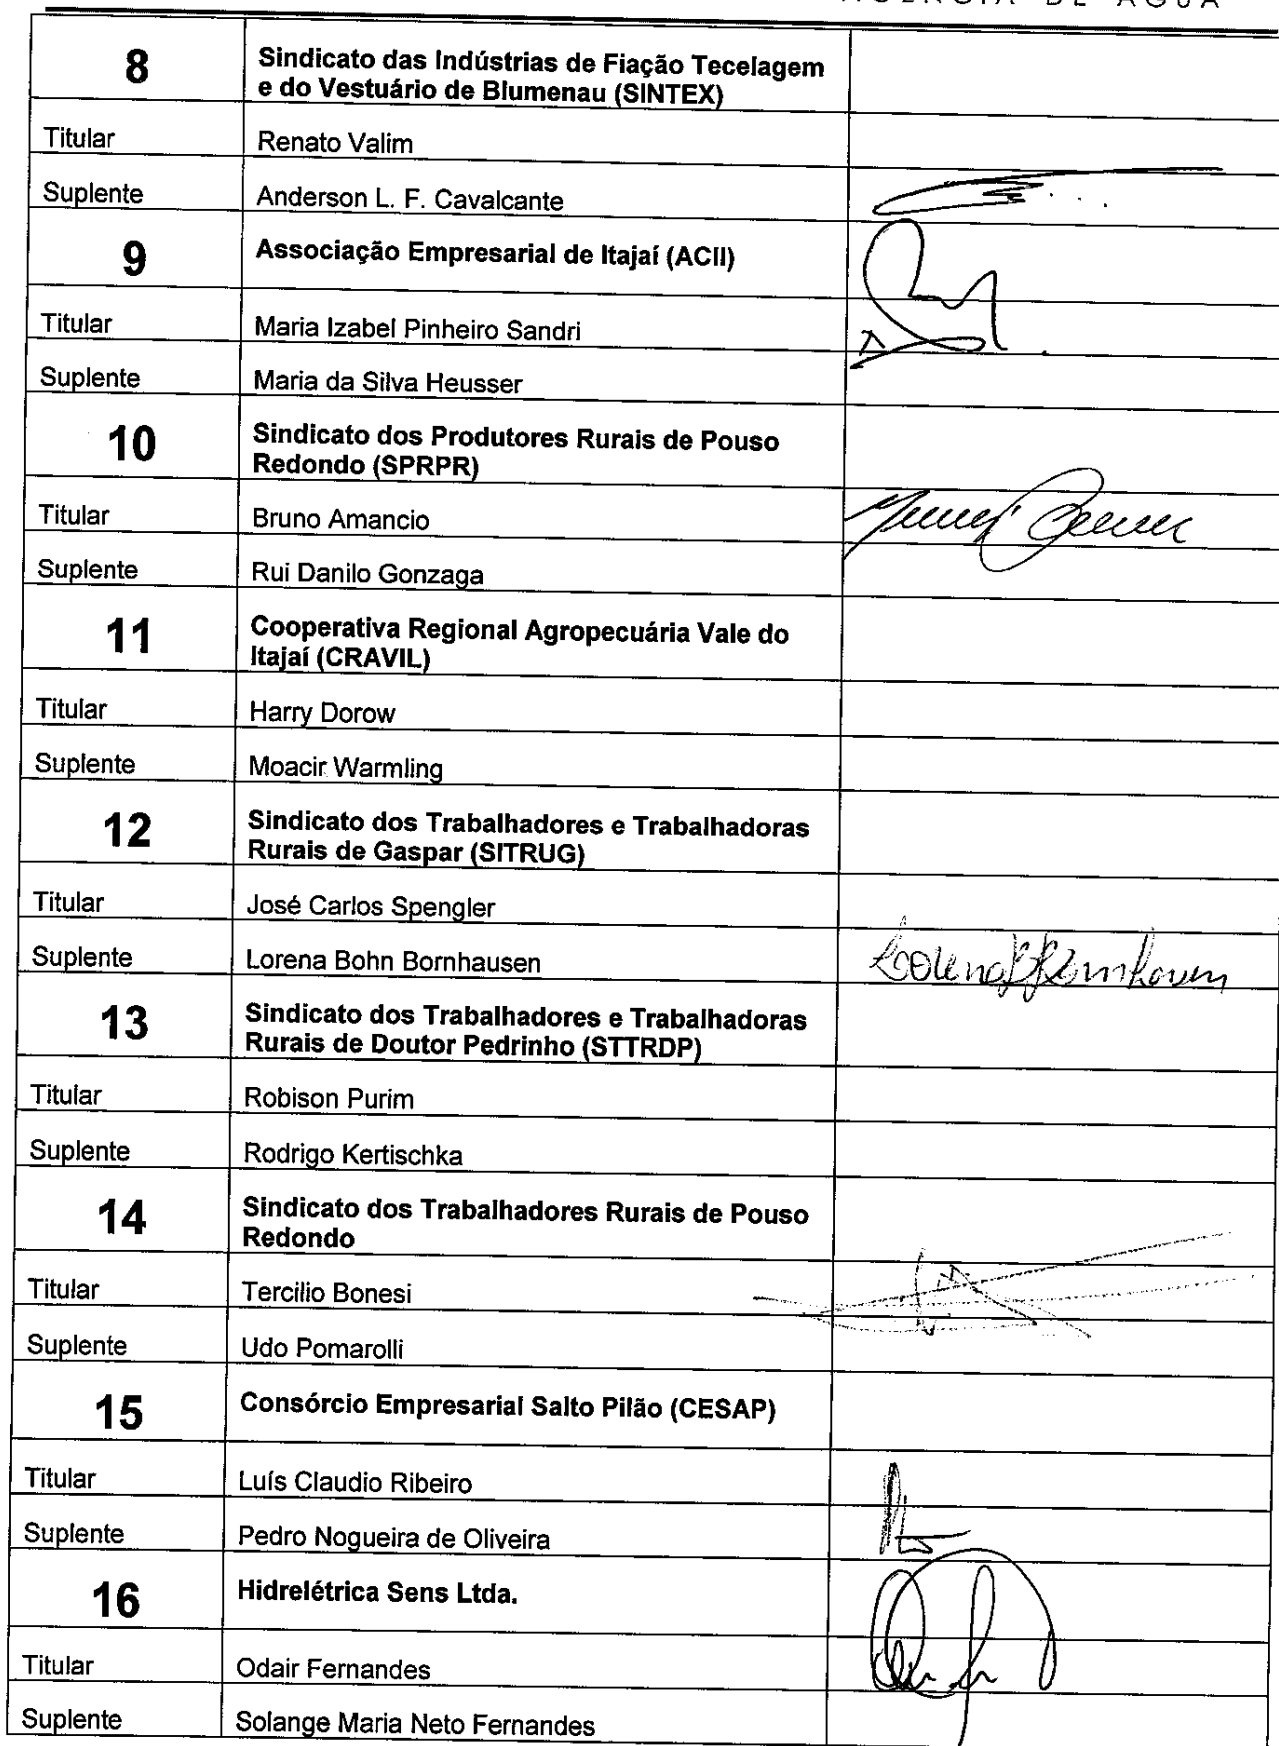 AGÊNCIA DE ÁGUA
8 Sindicato das Indústrias de Fiação Tecelagem
e do Vestuário de Blumenau (SINTEX)
Titular Renato Valim
Suplente Anderson L. F. Cavalcante
9 Associação Empresarial de Itajaí (ACII)
Titular Maria Izabel Pinheiro Sandri
Suplente Maria da Silva Heusser
10 Sindicato dos Produtores Rurais de Pouso
Redondo (SPRPR)
Titular Bruno Amancio
Suplente Rui Danilo Gonzaga
11 Cooperativa Regional Agropecuária Vale do
Itajaí (CRAVIL)
Titular Harry Dorow
Suplente Moacir Warmling
12 Sindicato dos Trabalhadores e Trabalhadoras
Rurais de Gaspar (SITRUG)
Titular José Carlos Spengler
Suplente Lorena Bohn Bornhausen
13 Sindicato dos Trabalhadores e Trabalhadoras
Rurais de Doutor Pedrinho (STTRDP)
Titular Robison Purim
Suplente Rodrigo Kertischka
14 Sindicato dos Trabalhadores Rurais de Pouso
Redondo
Titular Tercilio Bonesi
Suplente Udo Pomarolli
15 Consórcio Empresarial Salto Pilão (CESAP)
Titular Luís Claudio Ribeiro
Suplente Pedro Nogueira de Oliveira
16 Hidrelétrica Sens Ltda.
Titular Odair Fernandes
Suplente Solange Maria Neto Fernandes